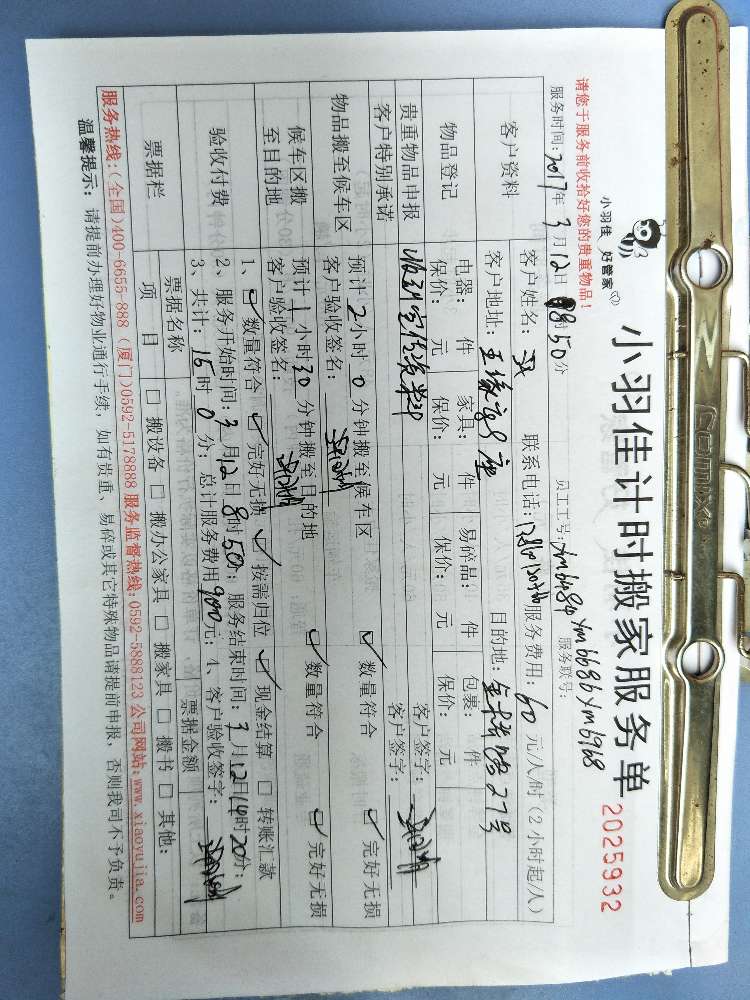 小羽佳 好管家
小羽佳计时搬家服务单
2025932
请您于服务前收拾好您的贵重物品!
服务时间: 2017年 3月 12日 8时50分 员工工号: 服务联号:
客户资料 客户姓名: 联系电话: 服务费用: 60 元/人/时(2小时起/人)
客户地址: 目的地: 27号
物品登记 电器: 件 家具: 件 易碎品: 件 包裹: 件
保价: 元 保价: 元 保价: 元 保价: 元
贵重物品申报 客户签字:
客户特别承诺 客户签字:
物品搬至候车区 预计 2 小时 0 分钟搬至候车区 ☑ 数量符合 ☑ 完好无损
客户验收签名:
候车区搬至目的地 预计 1 小时 30 分钟搬至目的地 ☑ 数量符合 ☑ 完好无损
客户验收签名:
验收付费 1、☑ 数量符合 ☑ 完好无损 ☑ 按需归位 ☑ 现金结算 □ 转账汇款
2、服务开始时间: 3月 12日 8时 50分; 服务结束时间: 3月 12日 14时 20分;
3、共计: 15时 0分; 总计服务费用 900元; 4、客户验收签字:
票据栏 票据名称 票据金额
项目 □ 搬设备 □ 搬办公家具 □ 搬家具 □ 搬书 □ 其他:
服务热线:(全国)400-6655-888 (厦门)0592-5178888 服务监督热线:0592-5888123 公司网站:www.xiaoyujia.com
温馨提示: 请提前办理好物业通行手续,如有贵重、易碎或其它特殊物品请提前申报,否则我司不予负责。